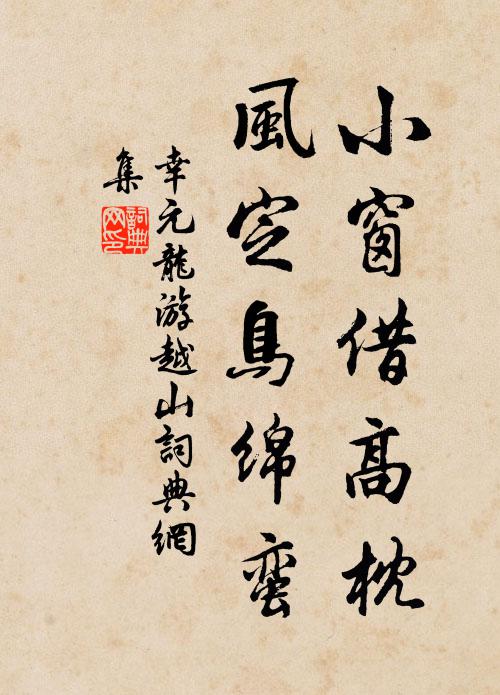 小窗借高枕
風定鳥綿蠻
幸元龍游越山詞典網
集
詞典
网印